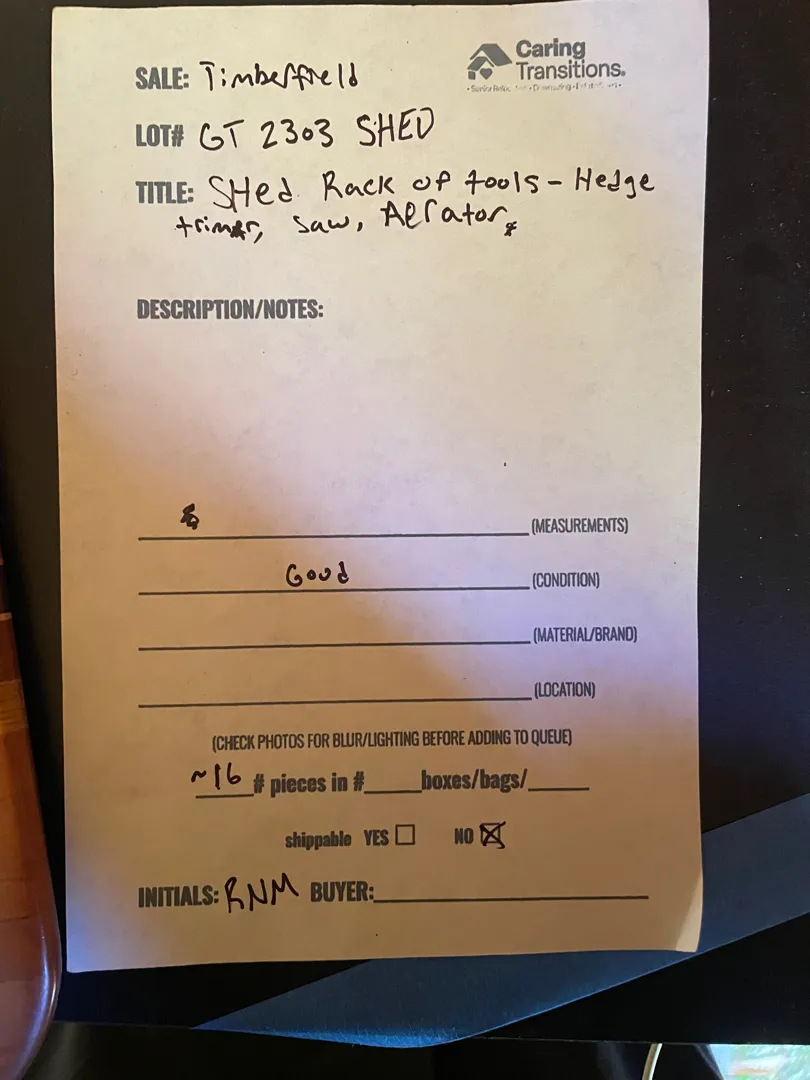 Caring
Transitions.
SALE: Timberfield
LOT# GT 2303 SHED
TITLE: SHed Rack of tools - Hedge
trimer, saw, Aerator
DESCRIPTION/NOTES:
(MEASUREMENTS)
Good (CONDITION)
(MATERIAL/BRAND)
(LOCATION)
(CHECK PHOTOS FOR BLUR/LIGHTING BEFORE ADDING TO QUEUE)
~16 # pieces in #____boxes/bags/____
shippable YES ☐ NO ☒
INITIALS: RNM BUYER: